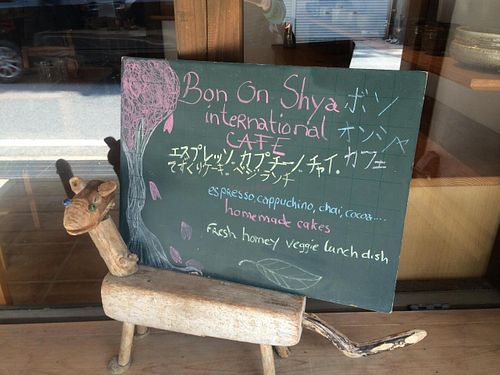 Bon On Shya
international
CAFE
ボン
オンシャ
カフェ
エスプレッソ カプチーノ チャイ.
てずくりケーキ ベジランチ
espresso, cappuchino, chai, cocoa....
homemade cakes
Fresh homey veggie lunch dish